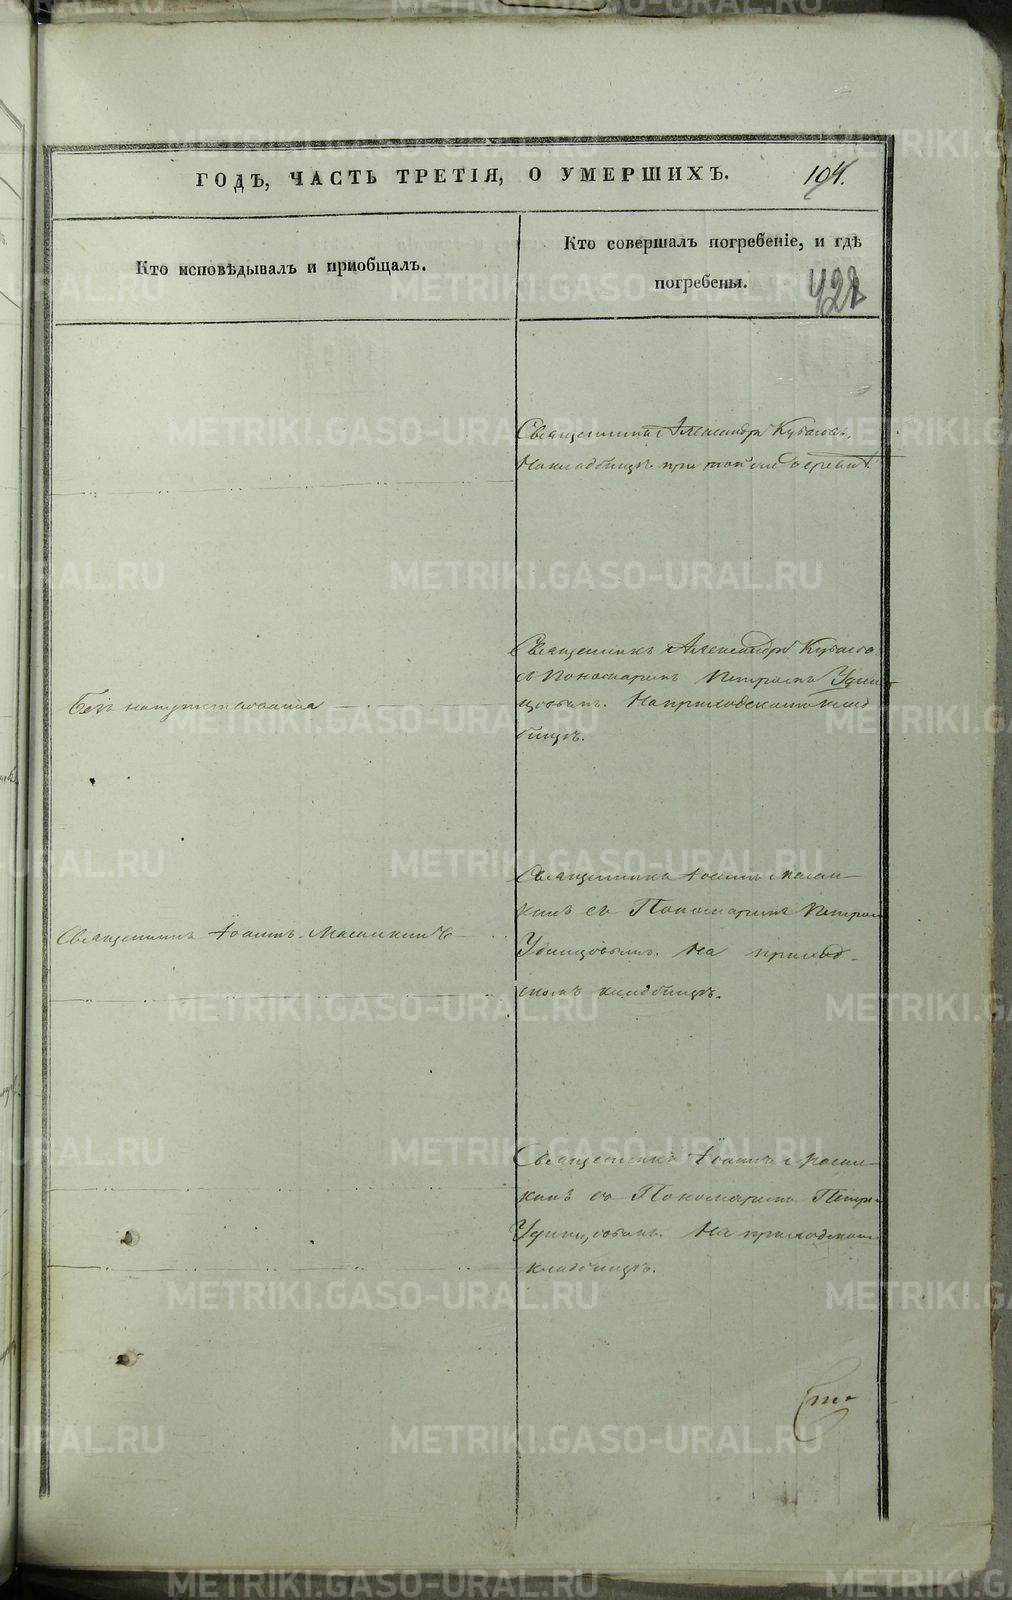 ГОДЪ, ЧАСТЬ ТРЕТІЯ, О УМЕРШИХЪ. 104.
Кто исповѣдывалъ и пріобщалъ.
Кто совершалъ погребеніе, и гдѣ
погребены.
428
Священникъ Александръ
На кладбищѣ при той же деревнѣ.
Безъ напутствованія
Священникъ Александръ
съ Пономаремъ Петромъ Удин-
цовымъ. На приходскомъ клад
бищѣ.
Священникъ Іоаннъ
Священникъ Іоаннъ
съ Пономаремъ Петром
Удинцовымъ. На приход-
скомъ кладбищѣ.
Священникъ Іоаннъ
съ Пономаремъ Петро
Удинцовымъ. На приходском
кладбищѣ.
METRIKI.GASO-URAL.RU